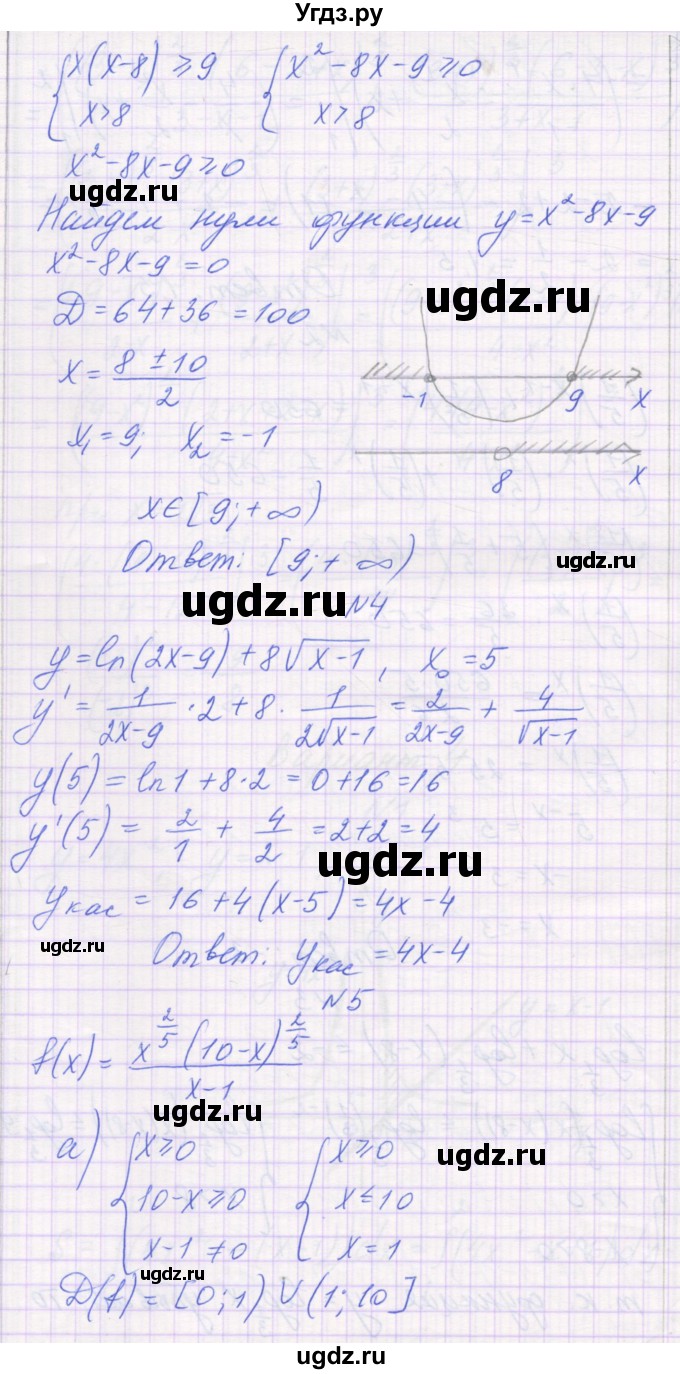 Угдз.ру
{ x(x-8) ≥ 9    { x² - 8x - 9 ≥ 0
{ x > 8    { x > 8
x² - 8x - 9 ≥ 0
ugdz.ru
Найдем нули функции y = x² - 8x - 9
x² - 8x - 9 = 0
ugdz.ru
D = 64 + 36 = 100
x = (8 ± 10)/2
-1    9    x
x₁ = 9; x₂ = -1
8    x
x ∈ [9; +∞)
Ответ: [9; +∞)
ugdz.ru
ugdz.ru
N4
y = ln(2x-9) + 8√(x-1), x₀ = 5
y' = 1/(2x-9) · 2 + 8 · 1/(2√(x-1)) = 2/(2x-9) + 4/√(x-1)
y(5) = ln1 + 8·2 = 0 + 16 = 16
y'(5) = 2/1 + 4/2 = 2 + 2 = 4
ugdz.ru
yкас = 16 + 4(x-5) = 4x - 4
ugdz.ru
Ответ: yкас = 4x - 4
N5
f(x) = x^(2/5) (10-x)^(2/5) / (x-1)
ugdz.ru
а) { x ≥ 0    { x ≥ 0
ugdz.ru
{ 10 - x ≥ 0    { x ≤ 10
{ x - 1 ≠ 0    { x = 1
ugdz.ru
D(f) = [0; 1) ∪ (1; 10]
ugdz.ru